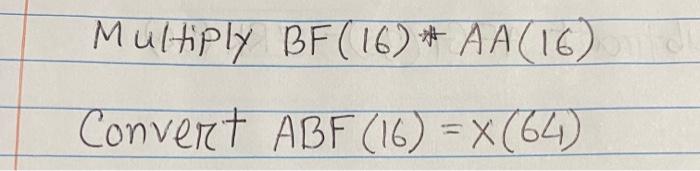 Multiply BF(16) * AA(16)
Convert ABF(16) = X(64)